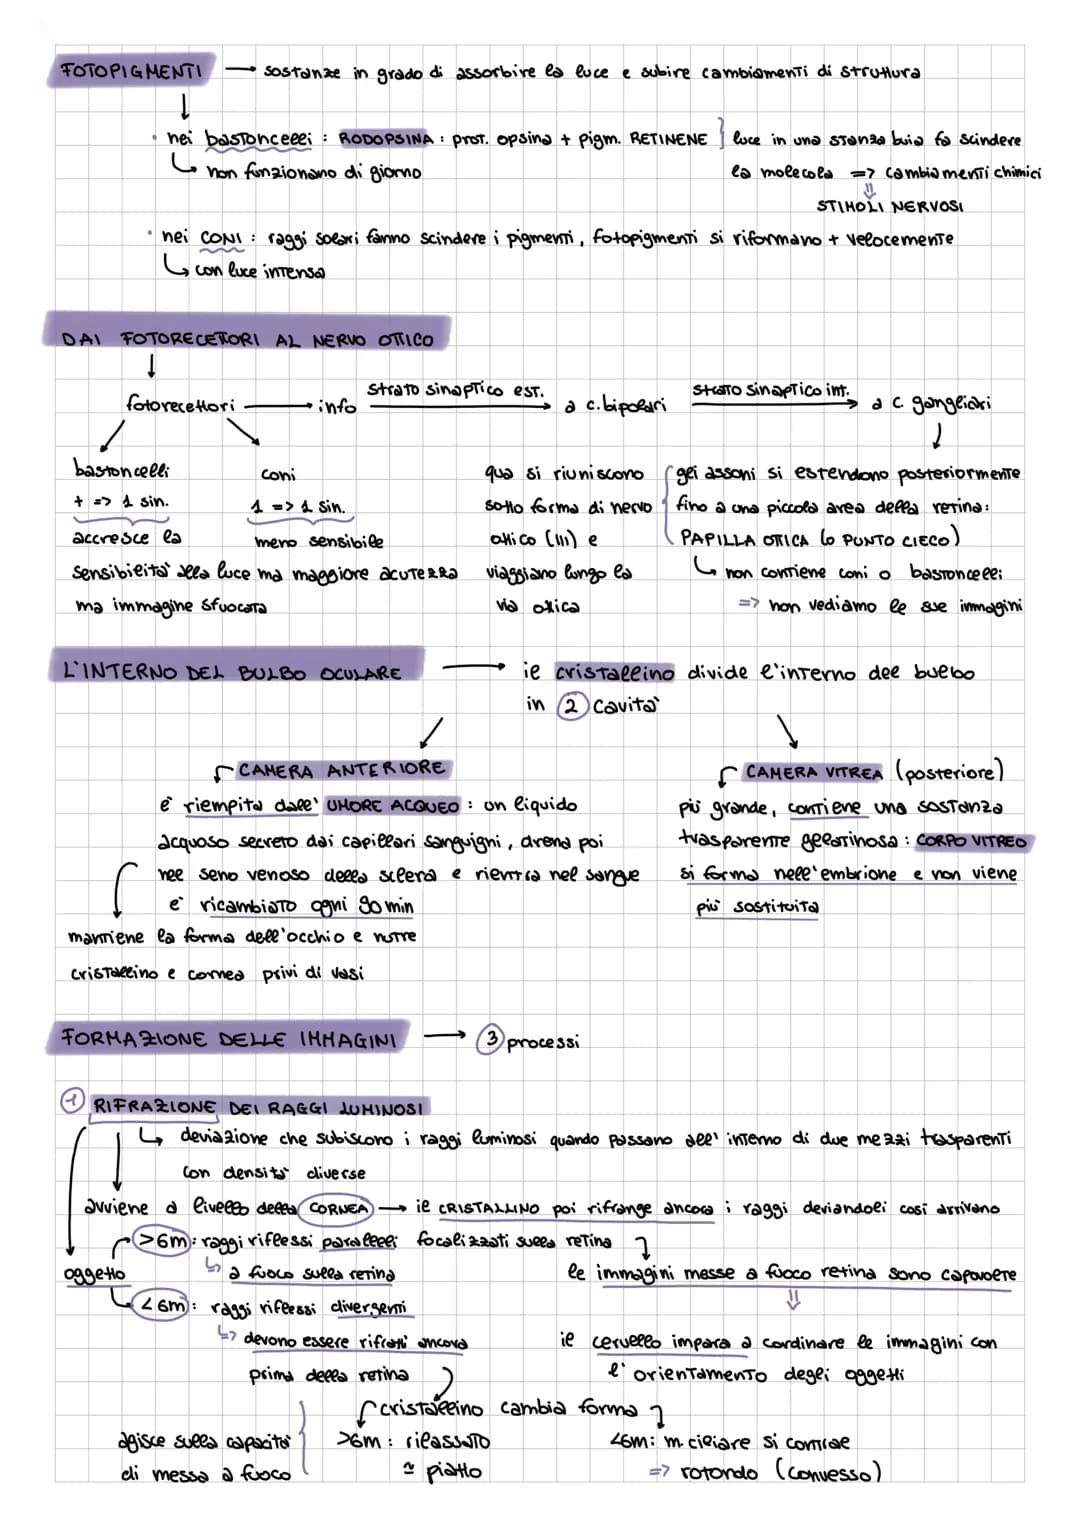 FOTOPIGMENTI → sostanze in grado di assorbire la luce e subire cambiamenti di struttura
• nei bastoncelli : RODOPSINA : prot. opsina + pigm. RETINENE } luce in una stanza buia fa scindere
↳ non funzionano di giorno
la molecola => cambiamenti chimici
⇓
STIMOLI NERVOSI
• nei CONI : raggi solari fanno scindere i pigmenti, fotopigmenti si riformano + velocemente
↳ con luce intensa
DAI FOTORECETORI AL NERVO OTTICO
fotorecettori → info strato sinaptico est. → a c. bipolari strato sinaptico int. → a c. gangliari
bastoncelli
+ => 1 sin.
accresce la
sensibilità alla luce
ma immagine sfuocata
coni
1 => 1 sin.
meno sensibile
ma maggiore acutezza
qua si riuniscono
sotto forma di nervo
ottico (III) e
viaggiano lungo la
via ottica
gli assoni si estendono posteriormente
fino a una piccola area della retina:
PAPILLA OTTICA (o PUNTO CIECO)
↳ non contiene coni o bastoncelli
=> non vediamo le sue immagini
L'INTERNO DEL BULBO OCULARE → il cristallino divide l'interno del bulbo
in 2 cavità
CAMERA ANTERIORE
è riempita dall' UMORE ACQUEO : un liquido
acquoso secreto dai capillari sanguigni, drena poi
nel seno venoso della sclera e rientra nel sangue
è ricambiato ogni 90 min
mantiene la forma dell'occhio e nutre
cristallino e cornea privi di vasi
CAMERA VITREA (posteriore)
più grande, contiene una sostanza
trasparente gelatinosa : CORPO VITREO
si forma nell'embrione e non viene
più sostituita
FORMAZIONE DELLE IMMAGINI → 3 processi
1 RIFRAZIONE DEI RAGGI LUMINOSI
↳ deviazione che subiscono i raggi luminosi quando passano all' interno di due mezzi trasparenti
con densità diverse
avviene a livello della CORNEA → il CRISTALLINO poi rifrange ancora i raggi deviandoli così arrivano
>6m : raggi riflessi paralleli focalizzati sulla retina
oggetto ↳ a fuoco sulla retina
le immagini messe a fuoco retina sono capovolte
⇓
<6m : raggi riflessi divergenti
↳ devono essere rifratti ancora
prima della retina
il cervello impara a cordinare le immagini con
l'orientamento degli oggetti
cristallino cambia forma
agisce sulla capacità
di messa a fuoco
>6m : rilassato
≃ piatto
<6m: m. ciliare si contrae
=> rotondo (convesso)